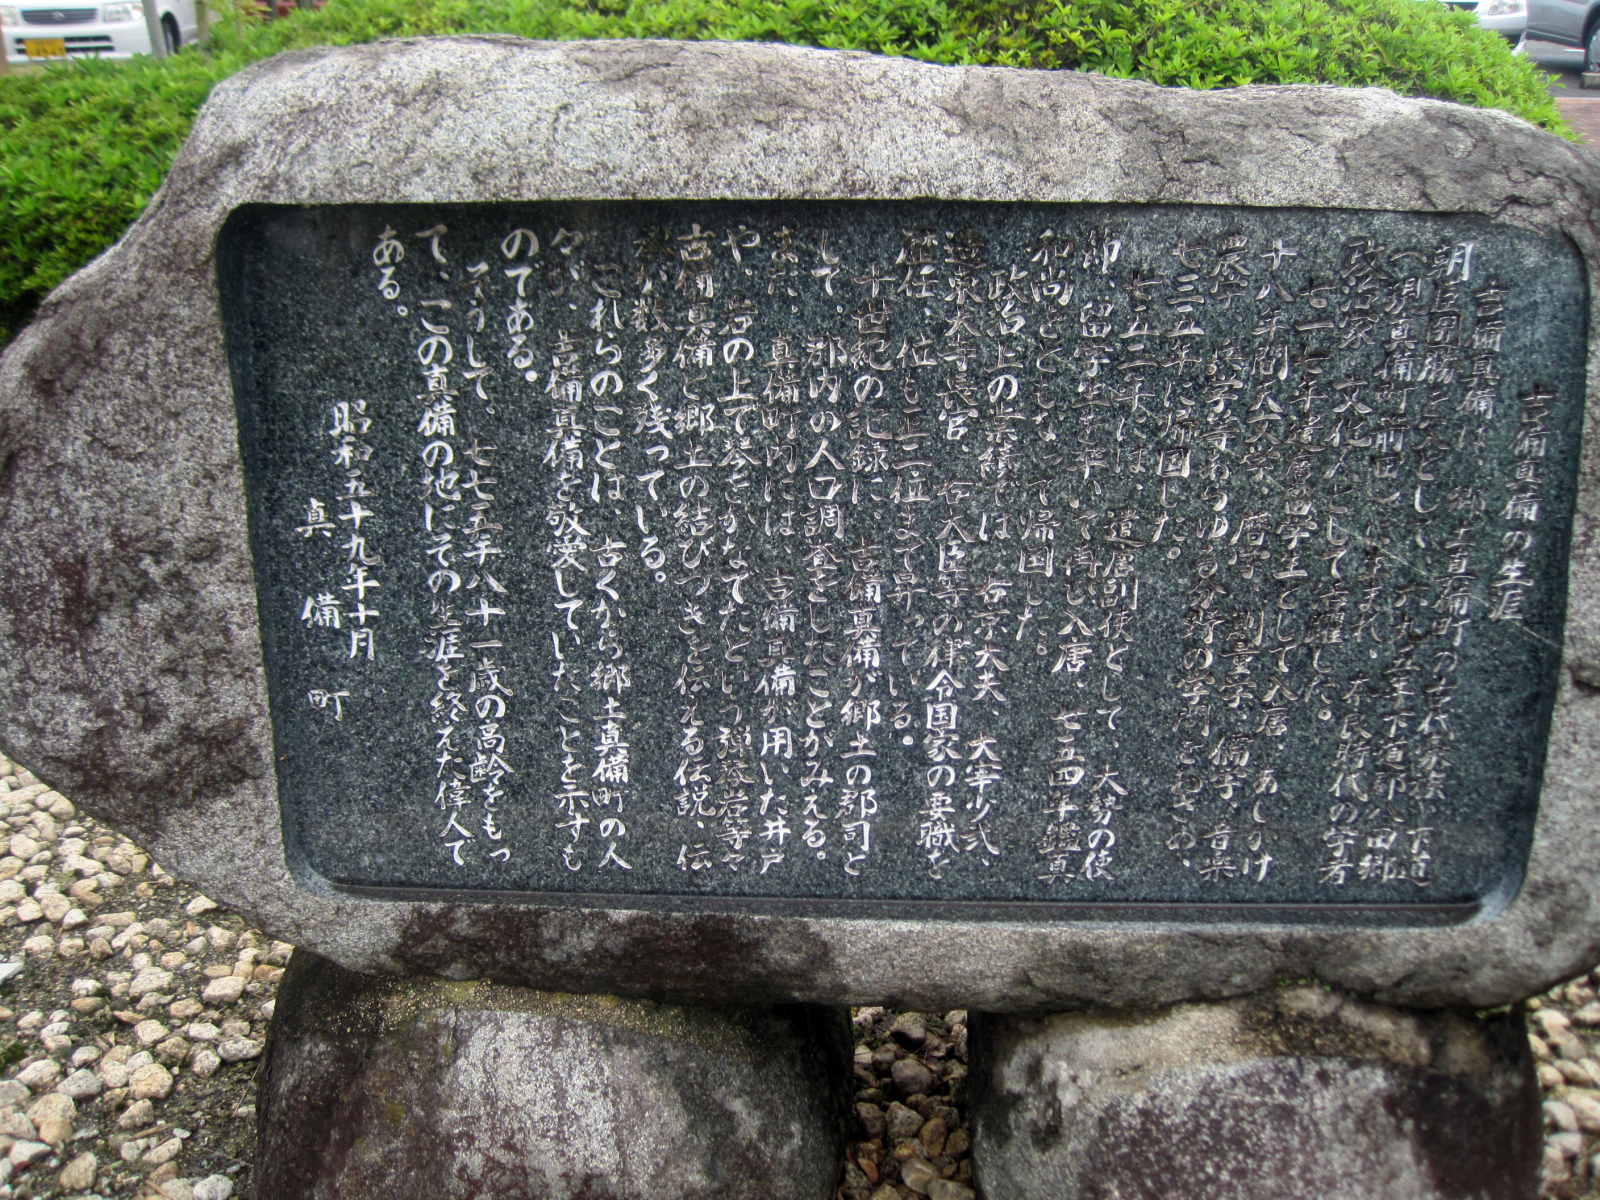 吉備真備の生涯
吉備真備は、郷土真備町の古代豪族 下道
朝臣国勝を父として、六九五年下道郡八田郷
(現真備町箭田)に生まれ、奈良時代の学者
政治家 文化人として活躍した。
七一七年遣唐留学生として入唐、あしかけ
十八年間天文学、暦学、測量学、儒学、音楽
農学 兵学等あらゆる分野の学問をおさめ、
七三五年に帰国した。
七五二年には、遣唐副使として、大勢の使
節、留学生を率いて再び入唐、七五四年鑑真
和尚をともなって帰国した。
政治上の業績では、右京大夫、大宰少弐、
造東大寺長官、右大臣等の律令国家の要職を
歴任、位も正二位まで昇っている。
十世紀の記録に、吉備真備が郷土の郡司と
して、郡内の人口調査をしたことがみえる。
また、真備町内には、吉備真備が用いた井戸
や、岩の上で琴をかなでたという弾琴岩等々
吉備真備と郷土の結びつきを伝える伝説、伝
承が数多く残っている。
これらのことは、古くから郷土真備町の人
々が、吉備真備を敬愛していたことを示すも
のである。
そうして、七七五年八十一歳の高齢をもっ
て、この真備の地にその生涯を終えた偉人で
ある。
昭和五十九年十月
真備町